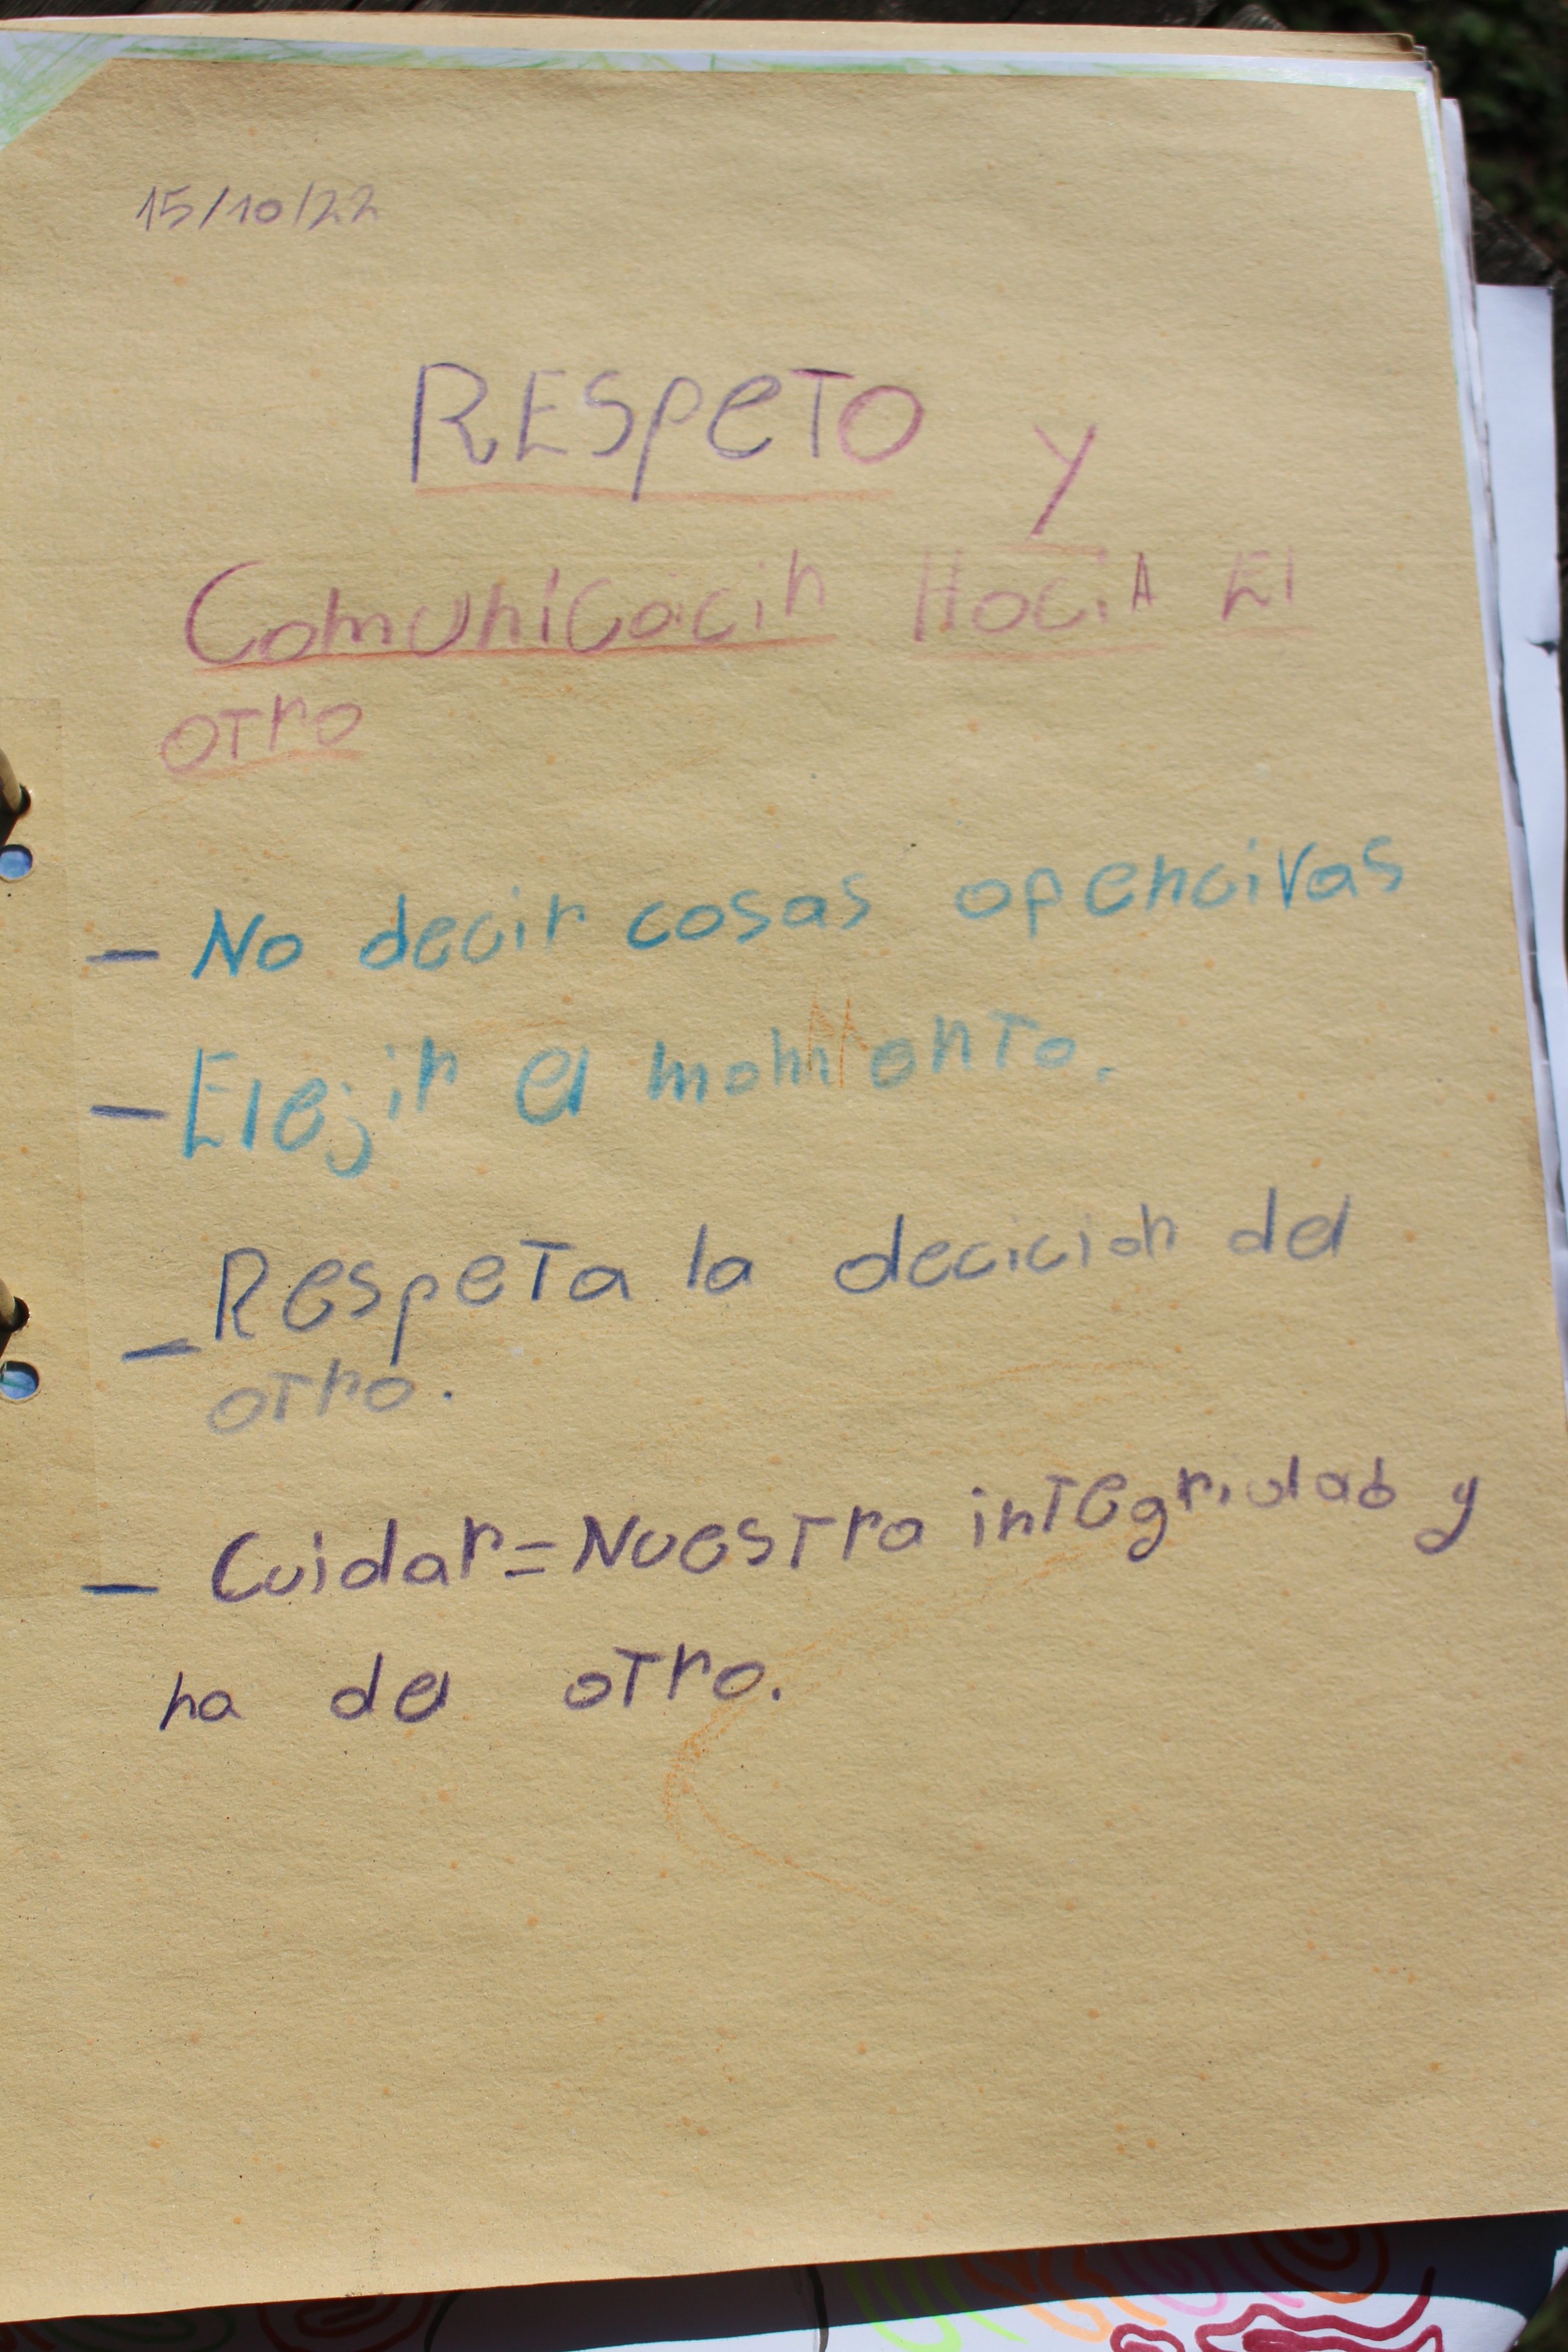 15/10/22
RESpeTO y
Comunicacin Hacia El
otro
- No decir cosas opencivas
- Elejir el momento.
- Respeta la decicion del
otro.
- Cuidar = Nuestra integridad y
ha del otro.